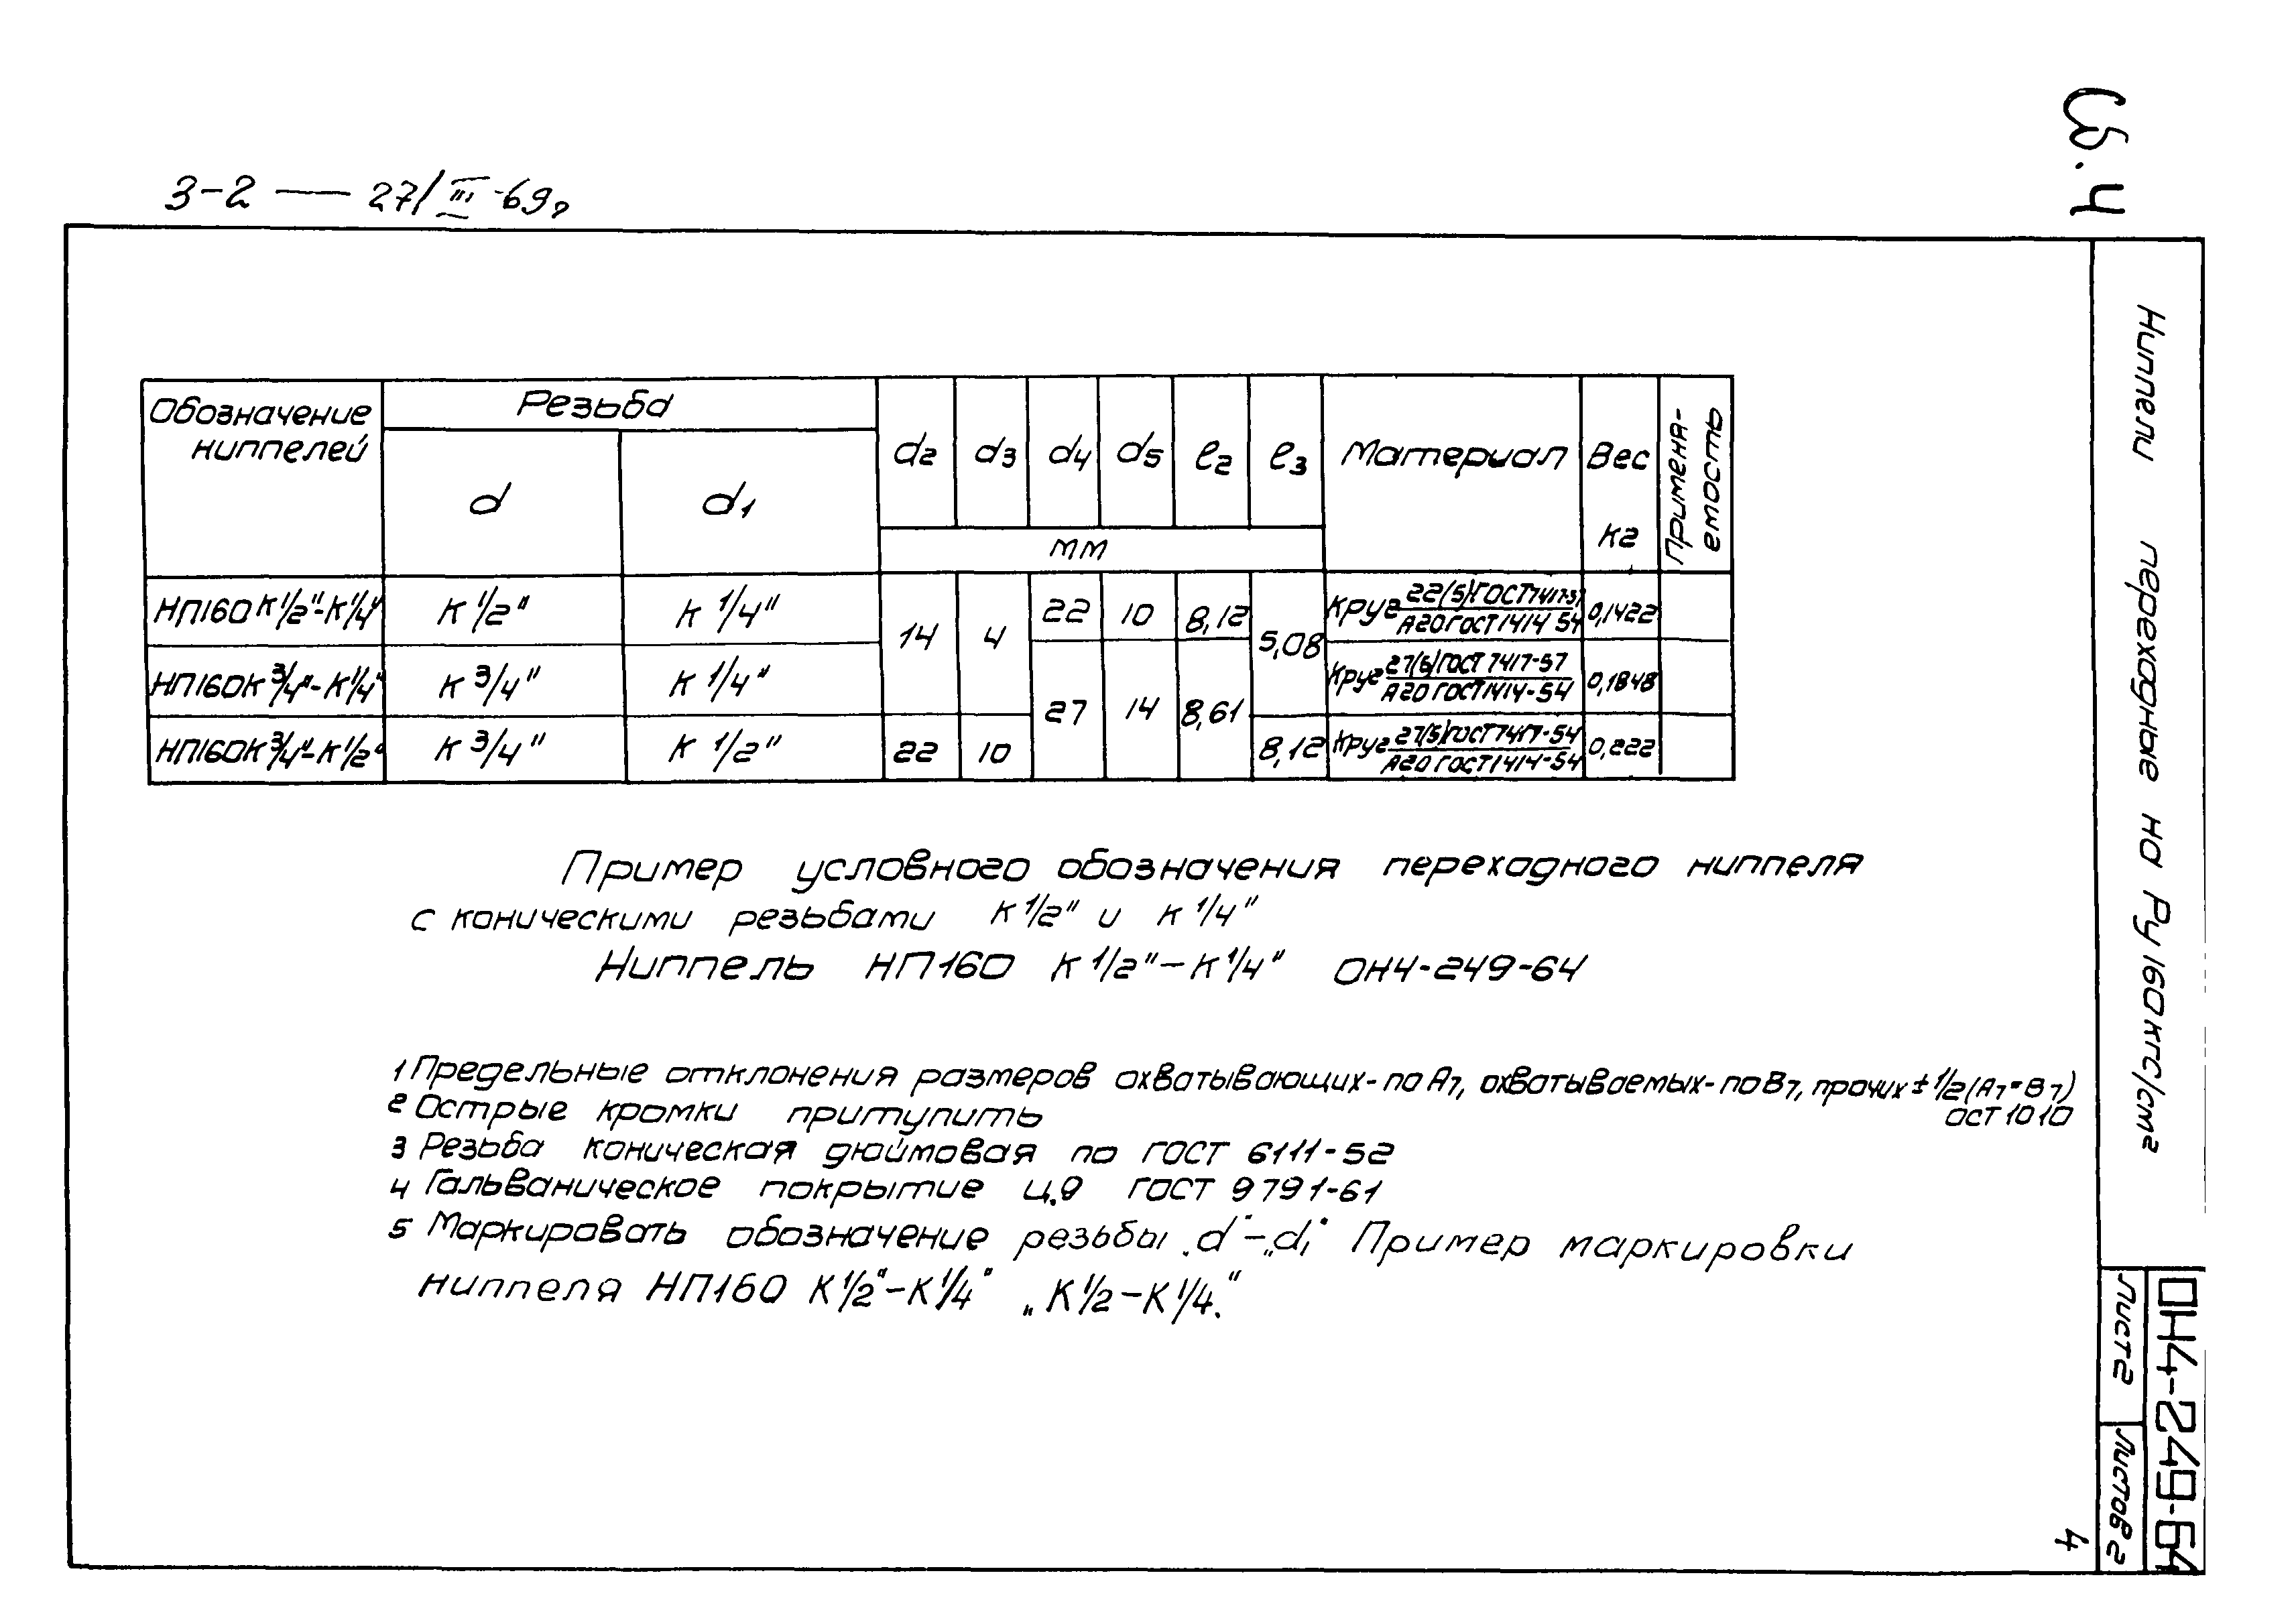 Св. 4
3-2 — 27/III-69г
Обозначение ниппелей | Резьба | d2 | d3 | d4 | d5 | ℓ2 | ℓ3 | Материал | Вес кг | Применяемость
d | d1 | мм
НП160К1/2"-К1/4" | К 1/2" | К 1/4" | 14 | 4 | 22 | 10 | 8,12 | 5,08 | Круг 22(5)ГОСТ7417-57 / А20 ГОСТ1414-54 | 0,1422
НП160К3/4"-К1/4" | К 3/4" | К 1/4" | 27 | 14 | 8,61 | Круг 27(5)ГОСТ 7417-57 / А20 ГОСТ1414-54 | 0,1848
НП160К3/4"-К1/2" | К 3/4" | К 1/2" | 22 | 10 | 8,12 | Круг 27(5)ГОСТ7417-54 / А20 ГОСТ1414-54 | 0,222
Пример условного обозначения переходного ниппеля
с коническими резьбами К 1/2" и К 1/4"
Ниппель НП160 К 1/2"-К 1/4" ОН4-249-64
1 Предельные отклонения размеров охватывающих-по А7, охватываемых-по В7, прочих ± 1/2 (А7=В7)
ОСТ 1010
2 Острые кромки притупить
3 Резьба коническая дюймовая по ГОСТ 6111-52
4 Гальваническое покрытие Ц.9 ГОСТ 9791-61
5 Маркировать обозначение резьбы „d"-„d1" Пример маркировки
ниппеля НП160 К1/2"-К1/4" „К1/2-К1/4."
Ниппели переходные на Ру 160кгс/см²
ОН4-249-64
Лист 2
Листов 2
4